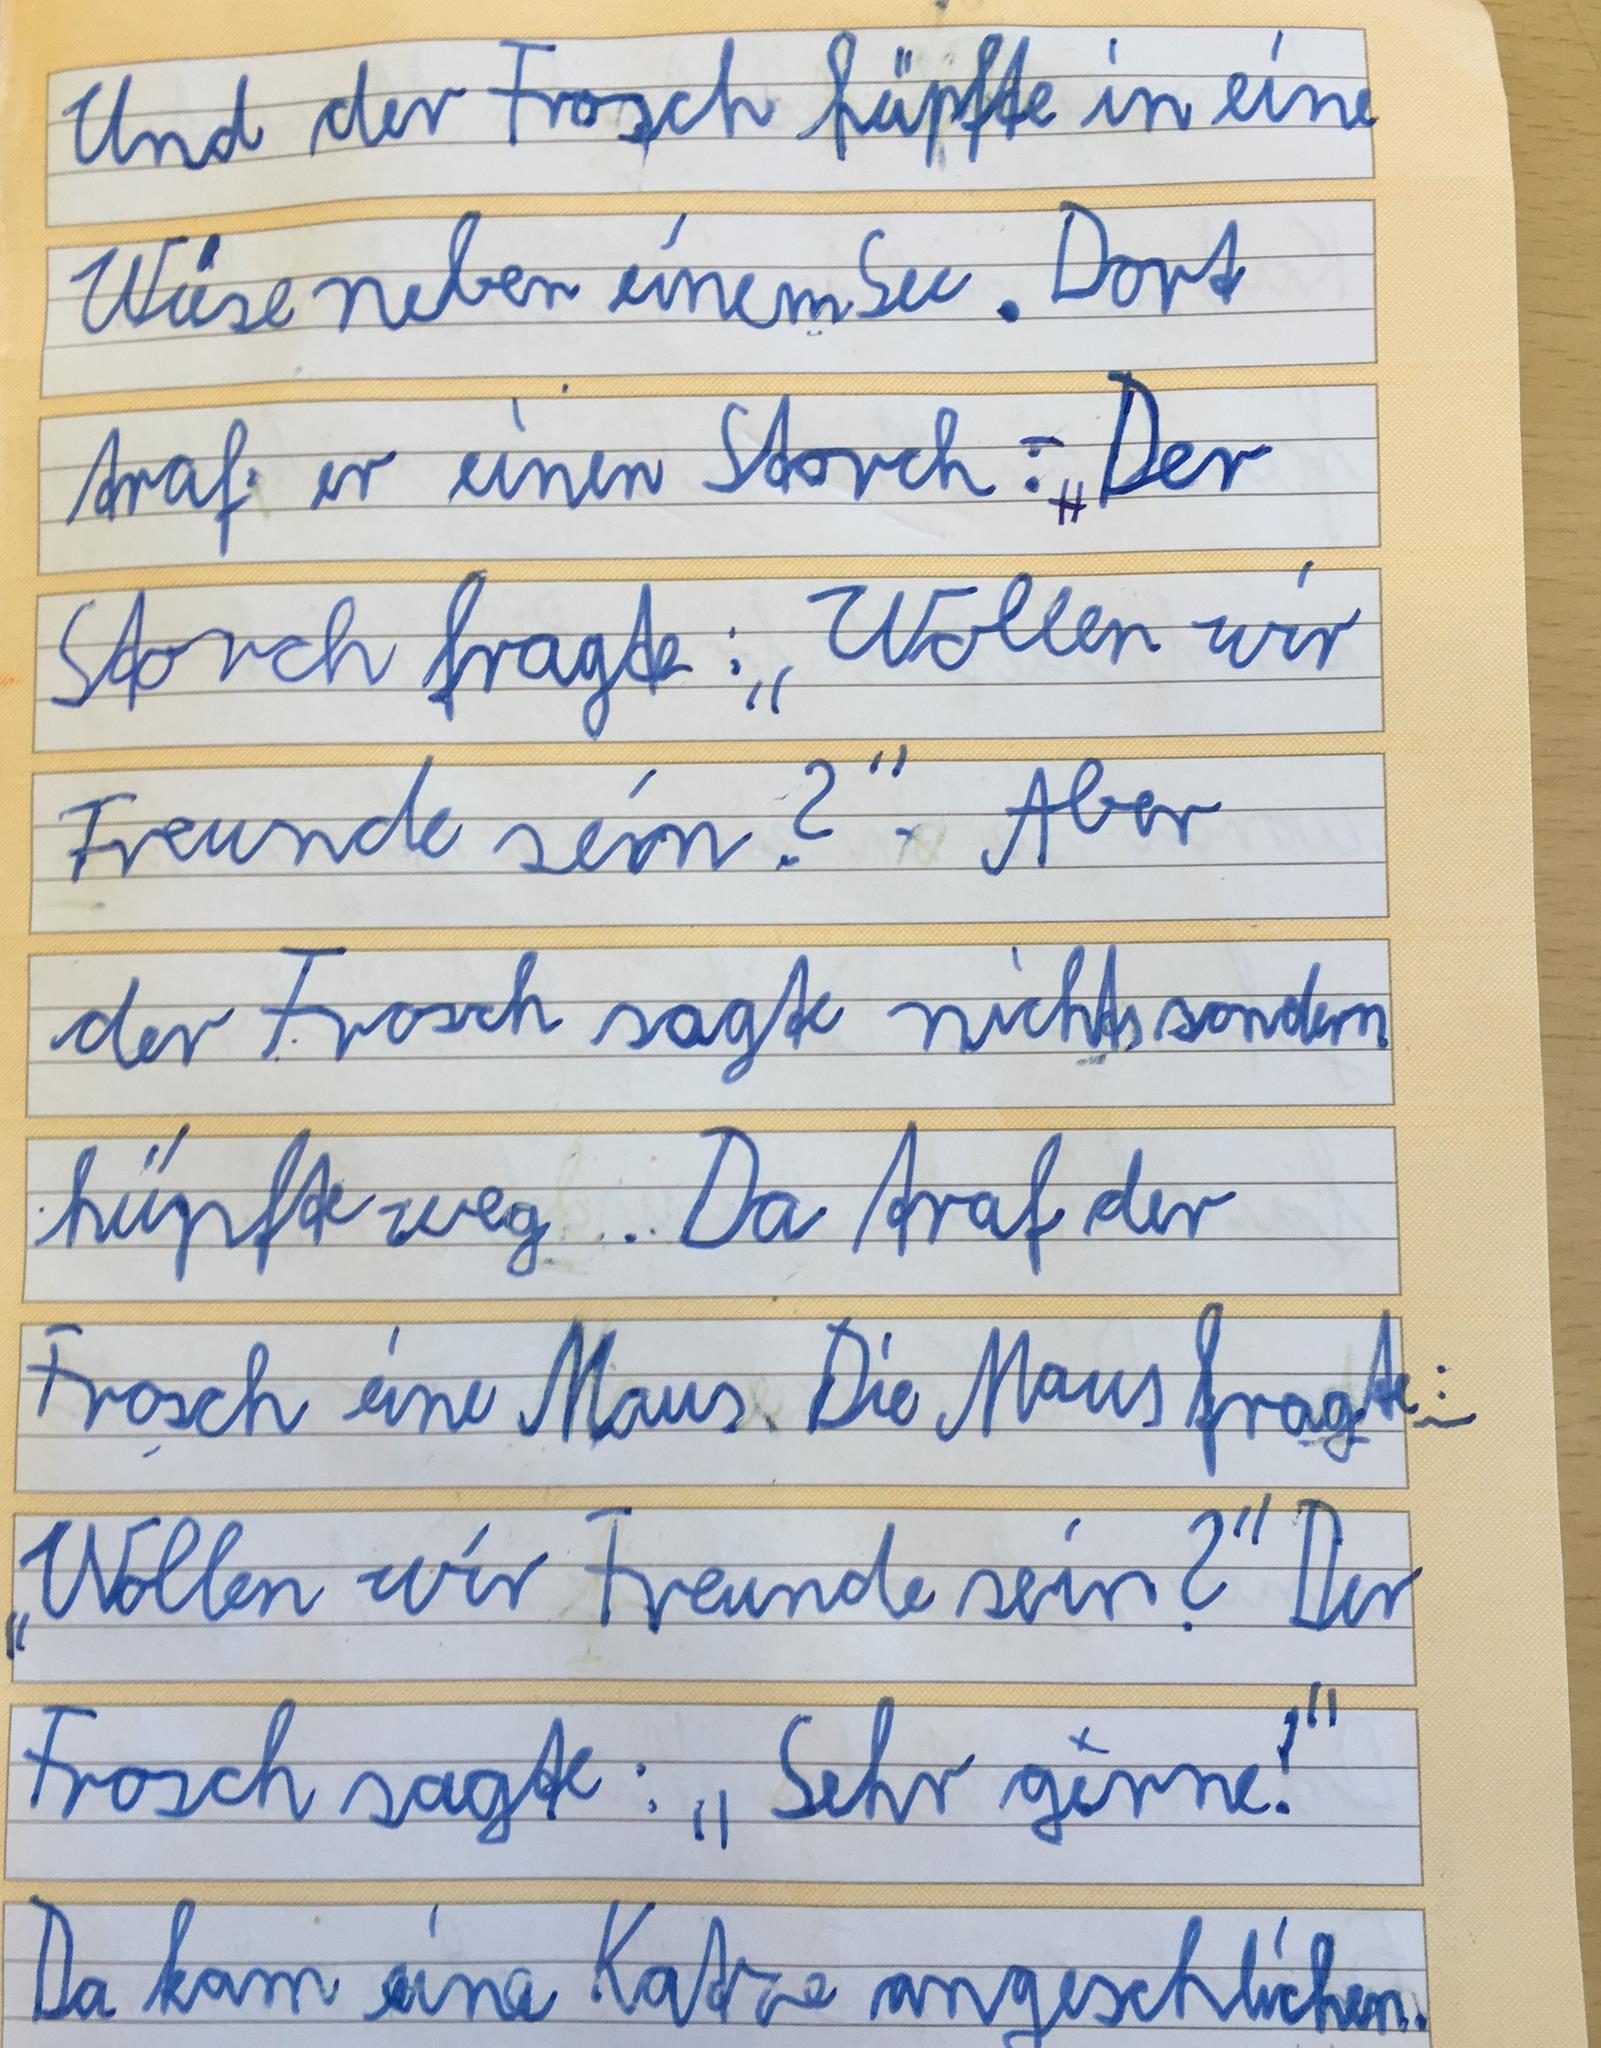 Und der Frosch hüpfte in eine
Wiese neben einem See. Dort
traf er einen Storch: „Der
Storch fragte: „Wollen wir
Freunde sein?“ Aber
der Frosch sagte nichts sondern
hüpfte weg.. Da traf der
Frosch eine Maus. Die Maus fragte:
„Wollen wir Freunde sein?“ Der
Frosch sagte: „Sehr gerne!“
Da kam eine Katze angeschlichen.